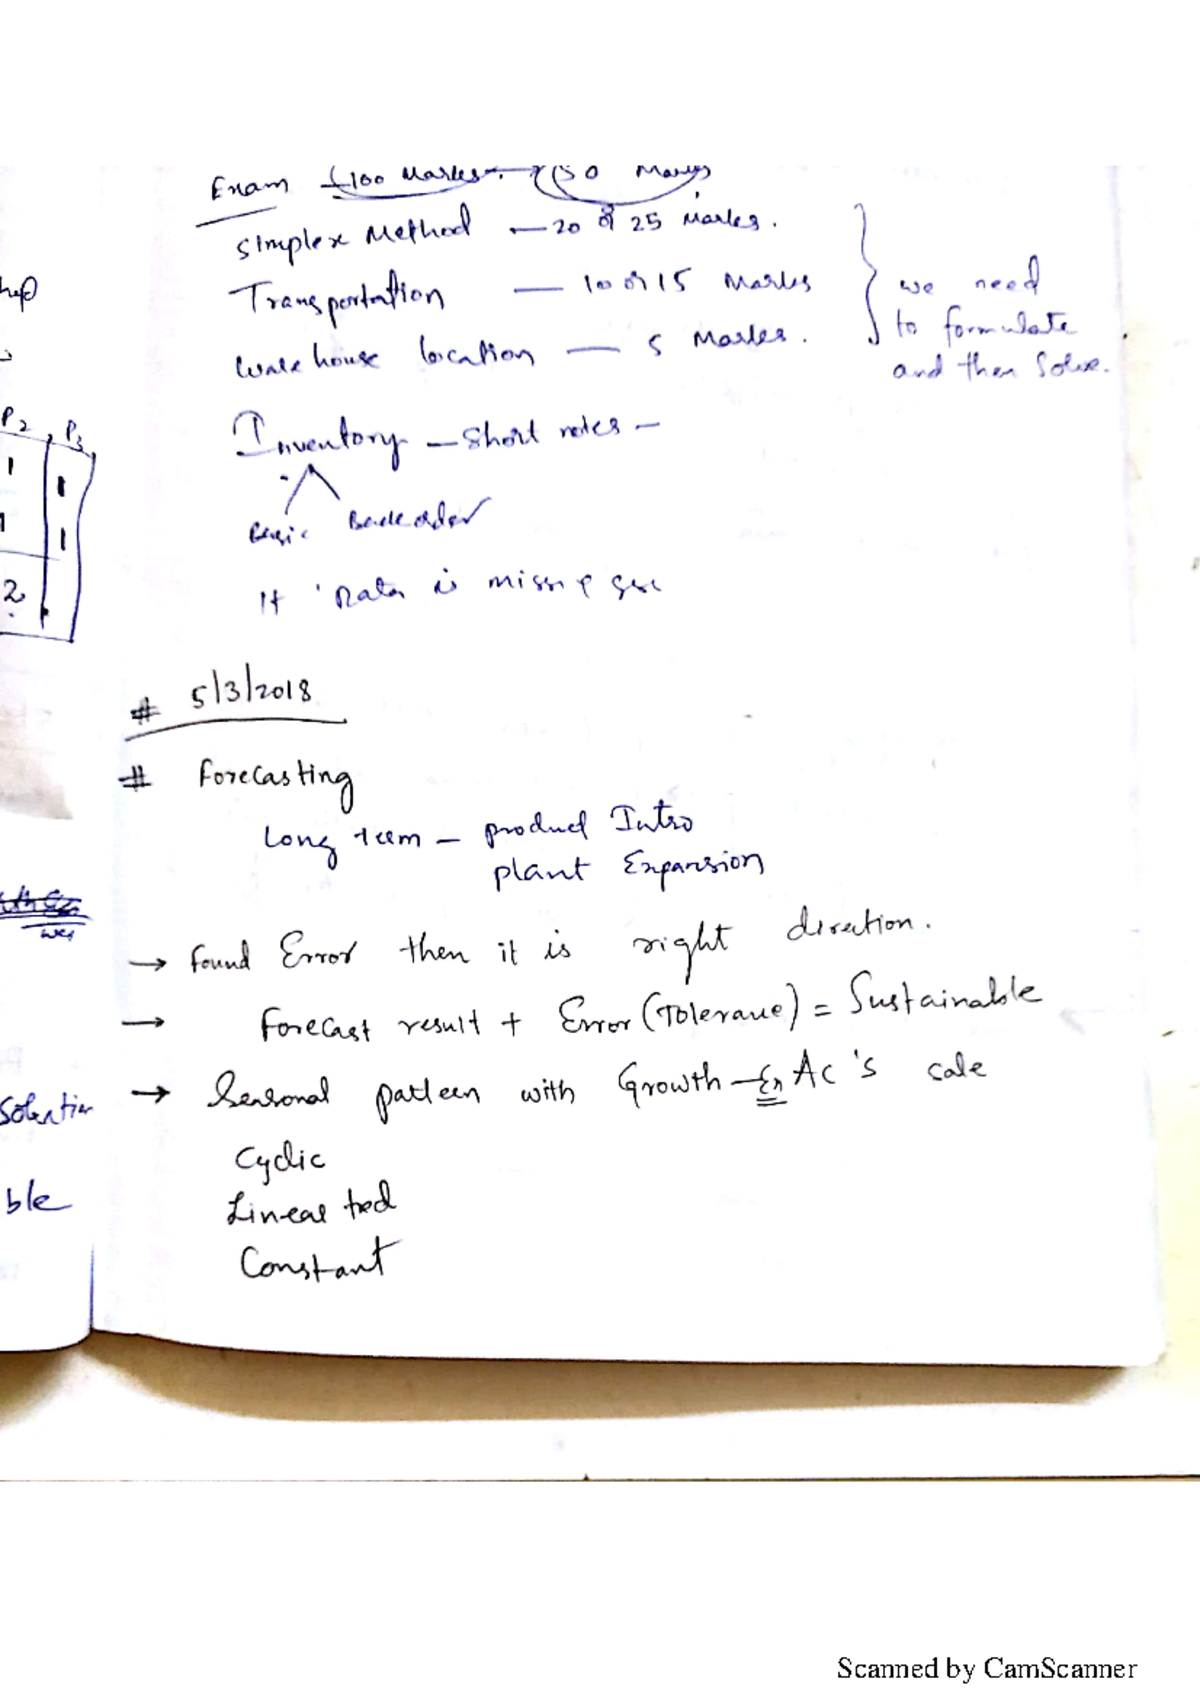 Exam (100 Marks. → (50 Marks
Simplex Method — 20 or 25 Marks.
Transportation — 10 or 15 Marks
Warehouse location — 5 Marks.
we need
to formulate
and then Solve.
Inventory — Short notes —
Basic Backorder
If Data is missing
hip
P2 P3
1 1
1 1
2
# 5/3/2018
# Forecasting
Long term — product Intro
plant Expansion
→ found Error then it is right direction.
→ Forecast result + Error (Tolerance) = Sustainable
→ Seasonal patteen with Growth — Ex AC's sale
Cyclic
Linear
Constant
ble
Scanned by CamScanner